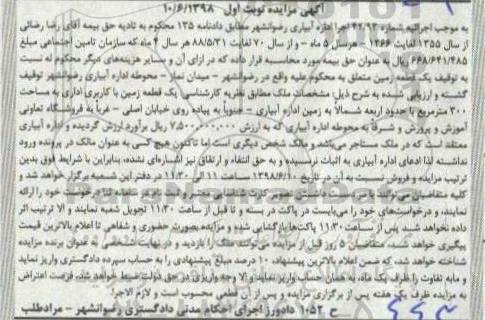 آگهی مزایده نوبت اول ۱۰/۶/۱۳۹۸
به موجب اجرائیه شماره ۴۲,۹۳ اجرا اداره آبیاری رضوانشهر مطابق دادنامه ۱۳۵ محکوم به تادیه حق بیمه آقای رضا رضائی
از سال ۱۳۵۵ لغایت ۱۳۶۶ - هرسال ۵ ماه - و از سال ۷۰ لغایت ۸۸/۵/۳۱ هر سال ۴ ماه که سازمان تامین اجتماعی مبلغ
۶۶۸/۶۴۱/۴۸۵ ریال به عنوان حق بیمه مورد محاسبه قرار داده که در ازای آن و سایر هزینه‌های دیگر محکوم له نسبت
به توقیف یک قطعه زمین متعلق به محکوم علیه واقع در رضوانشهر - میدان نماز - محوطه اداره آبیاری رضوانشهر توقیف
گشته و ارزیابی شده به شرح ذیل: مشخصات ملک مطابق نظریه کارشناسی: یک قطعه زمین با کاربری اداری به مساحت
۳۰۰ مترمربع با حدود اربعه شمالاً به زمین اداره آبیاری - جنوباً به پیاده روی خیابان اصلی - غرباً به فروشگاه تعاونی
آموزش و پرورش و شرقاً به محوطه اداره آبیاری که به ارزش ۷,۵۰۰,۰۰۰,۰۰۰ ریال برآورد ارزش گردیده و اداره آبیاری
معتقد است که در ملک مستاجر می‌باشد و مالک شخص دیگری است اما تاکنون هیچ کسی به عنوان مالک در پرونده ورود
نداشته لذا ادعای اداره آبیاری به اثبات نرسیده و به حق انتفاع و ارتفاق نیز اشاره‌ای نشده، بنابراین با شرایط فوق بدین
ترتیب مزایده و فروش نسبت به آن در تاریخ ۱۳۹۸/۶/۱۰ ساعت ۱۱ الی ۱۱:۳۰ در دفتر این شعبه برگزار خواهد شد و
کلیه متقاضیان می‌توانند با در دست داشتن تصویر کارت شناسایی معتبر و ثبت نام در سامانه ثنا درخواست خود را ارائه
نمایند، و درخواست‌های خود را می‌بایست در پاکت در بسته و تا قبل از ساعت ۱۱:۳۰ تحویل شعبه نمایند و الا ترتیب اثر
داده نخواهد شد. پس از ساعت ۱۱:۳۰ پاکت‌ها بازگشایی شده و مزایده بصورت حضوری و شفاهی تا اعلام بالاترین قیمت
پیگیری خواهد شد، متقاضیان ۵ روز قبل از مزایده می‌توانند ملک را بازدید و در نهایت شخصی به عنوان برنده مزایده
شناخته خواهد شد، که ضمن اعلام بالاترین پیشنهاد، ۱۰ درصد مبلغ پیشنهادی را به حساب سپرده دادگستری واریز نماید
و مابه تفاوت را ظرف یک ماه، به همان حساب واریز نماید و الا وجه واریزی در حق دولت ضبط خواهد شد، فرصت اعتراض
به مزایده ظرف یک هفته پس از برگزاری مزایده و پس از آن قطعی محسوب است و لازم الاجرا.
ح ۱۰۵۲ دادورز اجرای احکام مدنی دادگستری رضوانشهر - مرادطلب